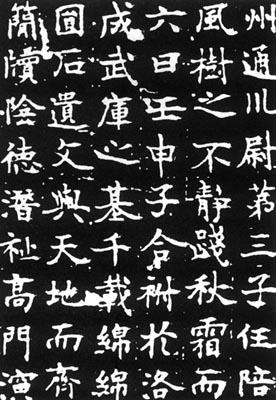 州通川尉苐三子任陪
風樹之不靜踐秋霜而
六日壬申子合祔於洛
成武庫之基千載綿綿
圎石遺文與天地而齊
簡牘陰徳潛祉高門演